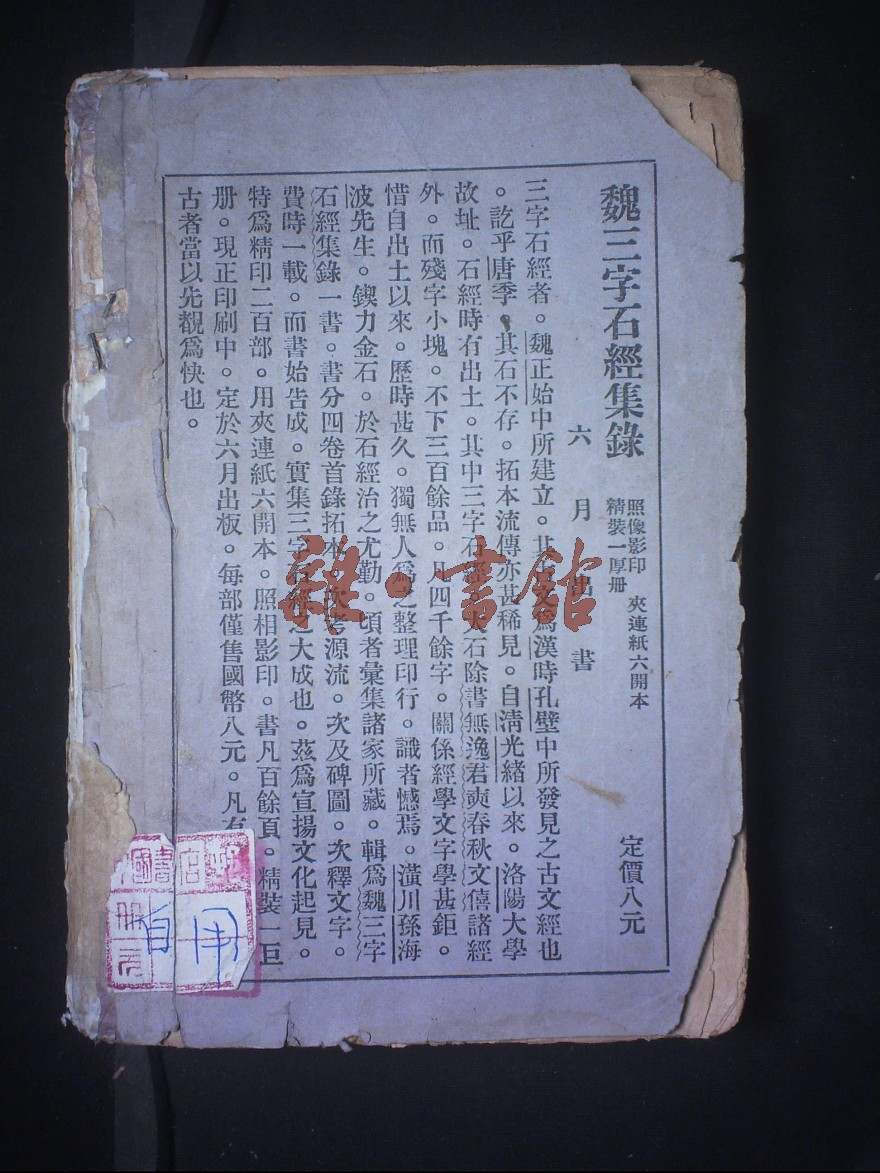 魏三字石經集錄
照像影印 夾連紙六開本
精裝一厚册
定價八元
六月出書
三字石經者。魏正始中所建立。其古文為漢時孔壁中所發見之古文經也
。訖乎唐季。其石不存。拓本流傳亦甚稀見。自淸光緒以來。洛陽大學
故址。石經時有出土。其中三字石經大石除書無逸君奭春秋文僖諸經
外。而殘字小塊。不下三百餘品。凡四千餘字。關係經學文字學甚鉅。
惜自出土以來。歷時甚久。獨無人爲之整理印行。識者憾焉。潢川孫海
波先生。鍥力金石。於石經治之尤勤。頃者彙集諸家所藏。輯爲魏三字
石經集錄一書。書分四卷首錄拓本。次考源流。次及碑圖。次釋文字。
費時一載。而書始告成。實集三字石經之大成也。茲爲宣揚文化起見。
特爲精印二百部。用夾連紙六開本。照相影印。書凡百餘頁。精裝一巨
册。現正印刷中。定於六月出板。每部僅售國幣八元。凡有
古者當以先覩爲快也。
自用
雜·書館